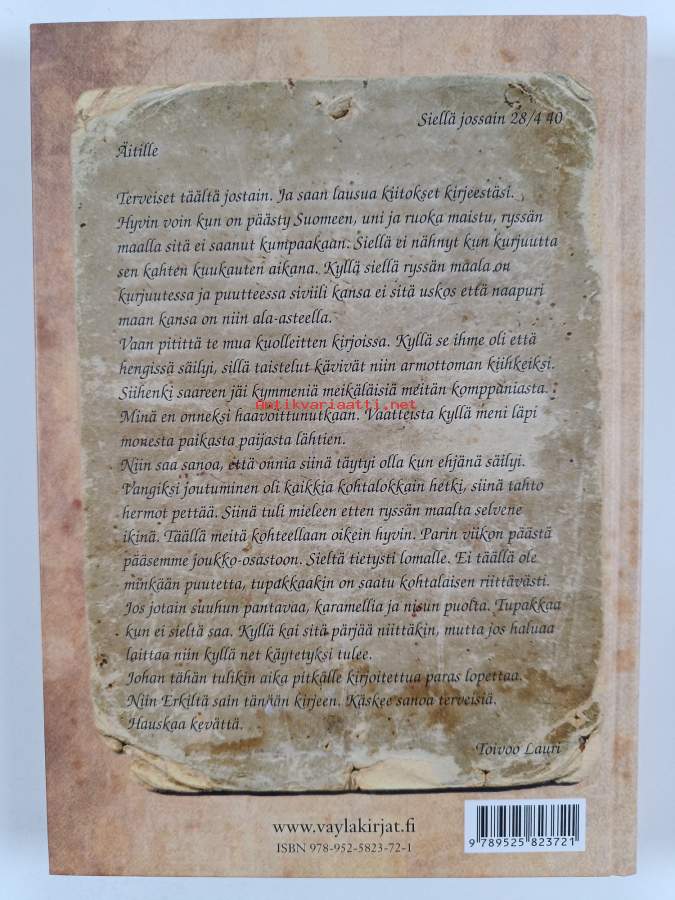 Siellä jossain 28/4 40
Äitille
Terveiset täältä jostain. Ja saan lausua kiitokset kirjeestäsi.
Hyvin voin kun on päästy Suomeen, uni ja ruoka maistu, ryssän
maalla sitä ei saanut kumpaakaan. Siellä ei nähnyt kun kurjuutta
sen kahten kuukauten aikana. Kyllä siellä ryssän maala on
kurjuutessa ja puutteessa siviili kansa ei sitä uskos että naapuri
maan kansa on niin ala-asteella.
Vaan pitittä te mua kuolleitten kirjoissa. Kyllä se ihme oli että
hengissä säilyi, sillä taistelut kävivät niin armottoman kiihkeiksi.
Siihenki saareen jäi kymmeniä meikäläisiä meitän komppaniasta.
Antikvariaatti.net
Minä en onneksi haavoittunutkaan. Vaatteista kyllä meni läpi
monesta paikasta paijasta lähtien.
Niin saa sanoa, että onnia siinä täytyi olla kun ehjänä säilyi.
Vangiksi joutuminen oli kaikkia kohtalokkain hetki, siinä tahto
hermot pettää. Siinä tuli mieleen etten ryssän maalta selvene
ikinä. Täällä meitä kohteellaan oikein hyvin. Parin viikon päästä
pääsemme joukko-osastoon. Sieltä tietysti lomalle. Ei täällä ole
minkään puutetta, tupakkaakin on saatu kohtalaisen riittävästi.
Jos jotain suuhun pantavaa, karamellia ja nisun puolta. Tupakkaa
kun ei sieltä saa. Kyllä kai sitä pärjää niittäkin, mutta jos haluaa
laittaa niin kyllä net käytetyksi tulee.
Johan tähän tulikin aika pitkälle kirjoitettua paras lopettaa.
Niin Erkiltä sain tänään kirjeen. Käskee sanoa terveisiä.
Hauskaa kevättä.
Toivoo Lauri
www.vaylakirjat.fi
ISBN 978-952-5823-72-1
9 789525 823721